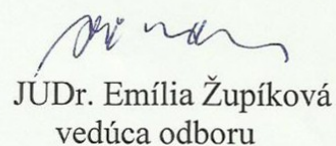 JUDr. Emília Župíková
vedúca odboru